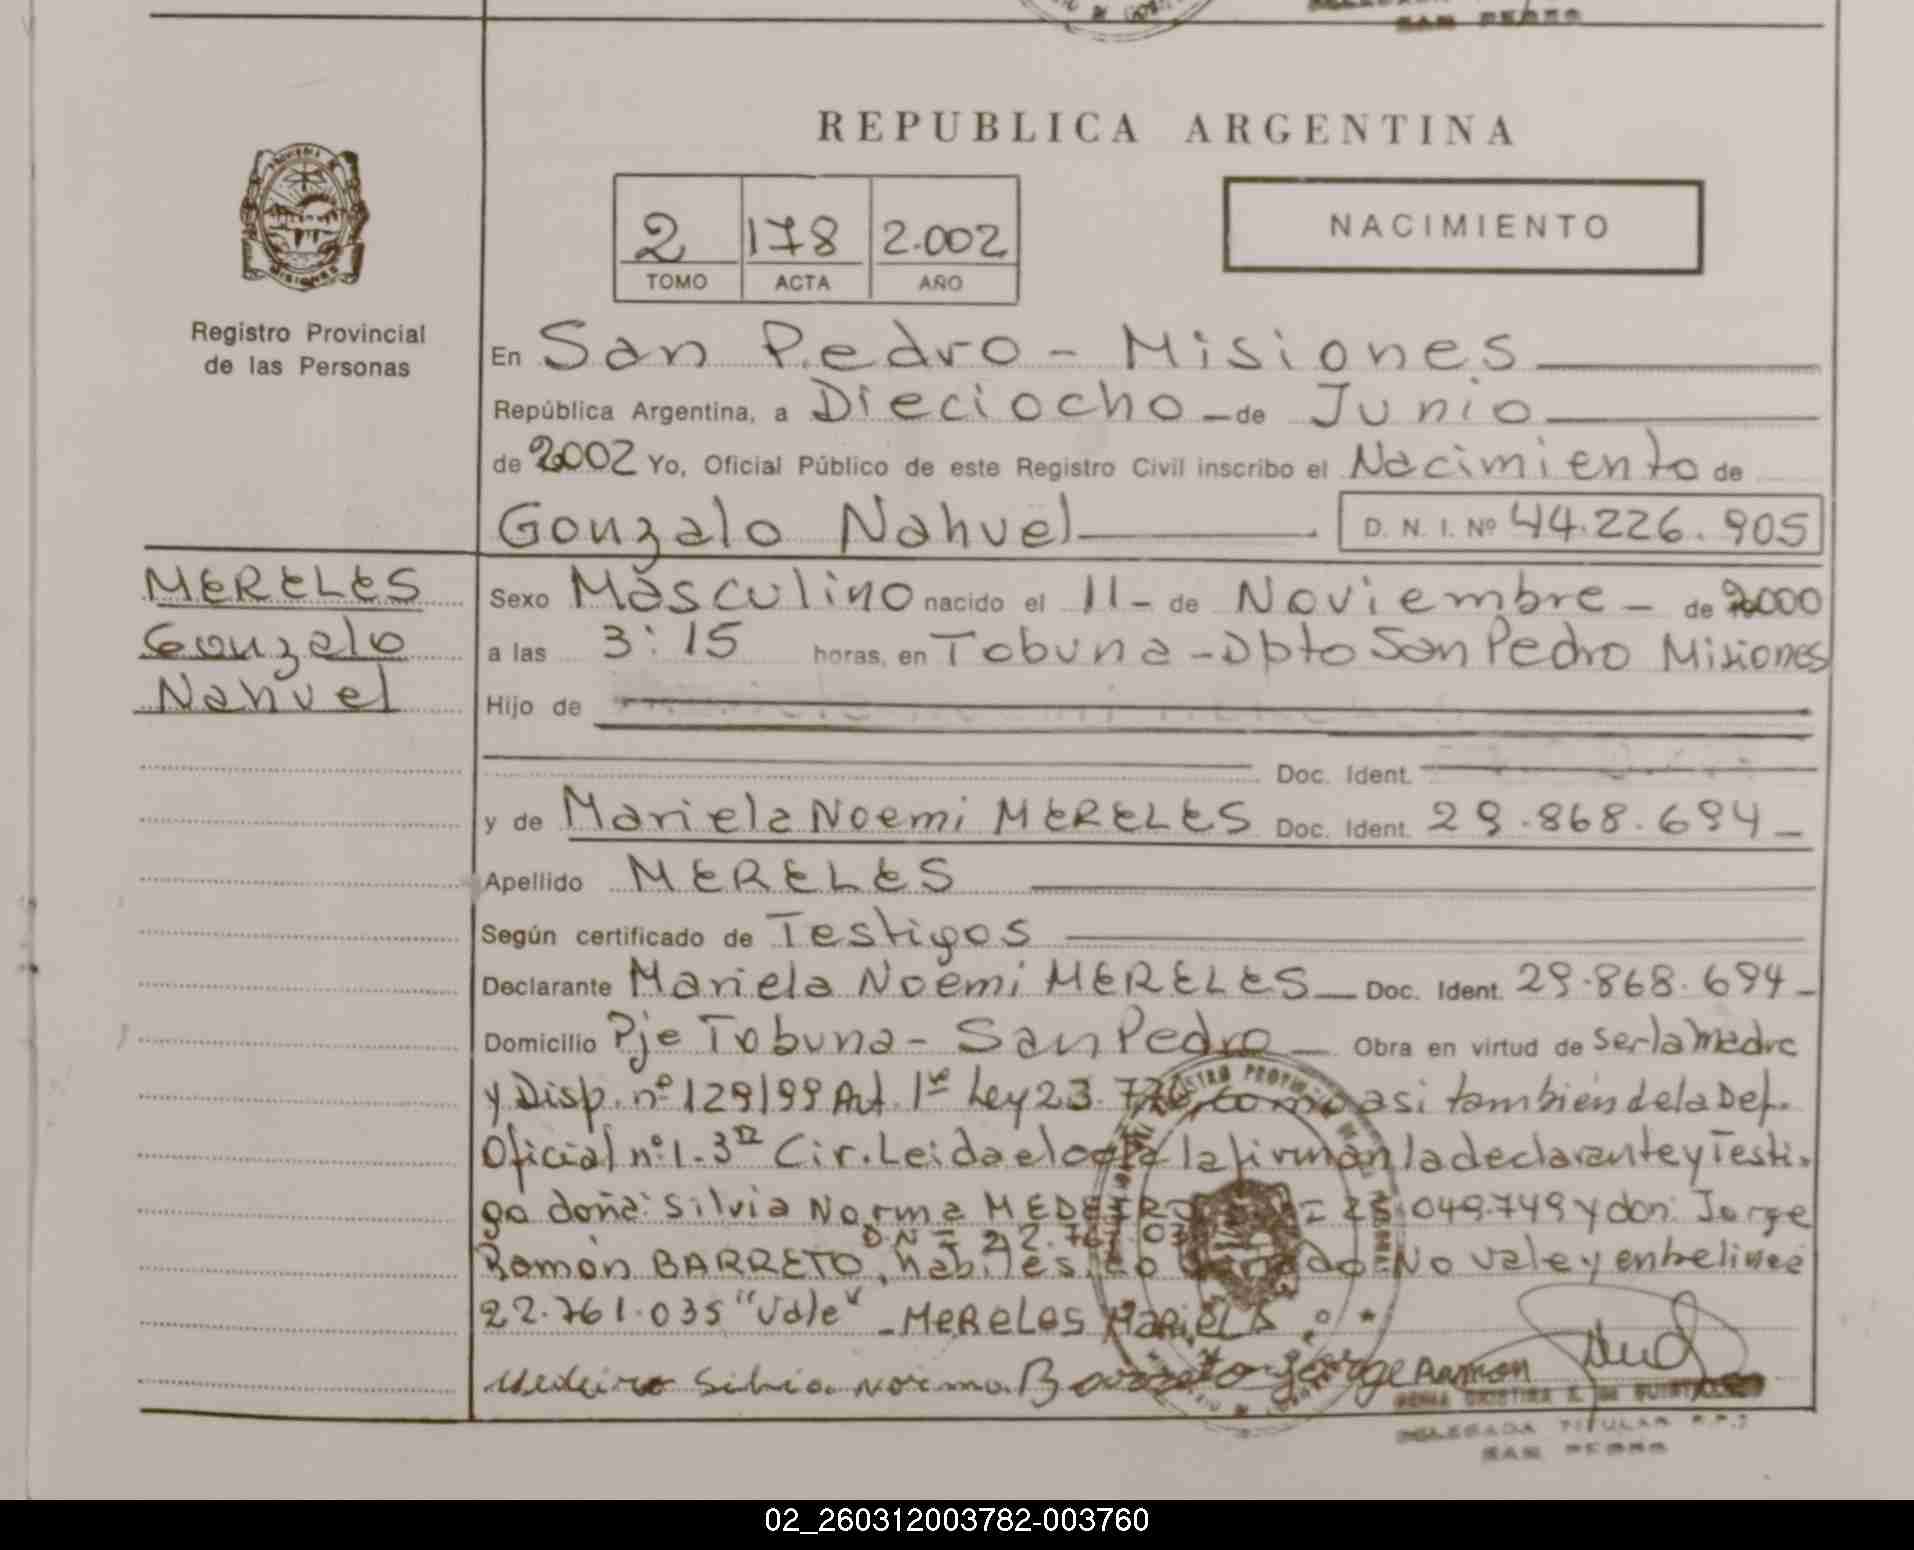 SAN PEDRO
REPUBLICA ARGENTINA
2 178 2.002
TOMO ACTA AÑO
NACIMIENTO
PROVINCIA DE
MISIONES
Registro Provincial
de las Personas
En San Pedro - Misiones
República Argentina, a Dieciocho - de Junio
de 2002 Yo, Oficial Público de este Registro Civil inscribo el Nacimiento de
Gonzalo Nahuel D. N. I. Nº 44.226.905
MERELES
Gonzalo
Nahuel
Sexo Masculino nacido el 11 - de Noviembre - de 2000
a las 3:15 horas, en Tobuna - Dpto San Pedro Misiones
Hijo de
Doc. Ident.
y de Mariela Noemi MERELES Doc. Ident. 29.868.694 -
Apellido MERELES
Según certificado de Testigos
Declarante Mariela Noemi MERELES - Doc. Ident. 29.868.694 -
Domicilio Pje Tobuna - San Pedro - Obra en virtud de ser la madre
y Disp. nº 129/99 Art. 1º Ley 23.776, como asi también de la Def.
Oficial nº 1 - 3ª Cir. Leida el acta la firman la declarante y Testi-
go doña: Silvia Norma 049.749 y don: Jorge
D.N.I.
Ramón BARRETO, habiles. No vale y entrelinea
22.761.035 "Vale" - MERELES MARIELA
Silvia Norma. Barreto Jorge Ramon
DELEGADA TITULAR R.P.
SAN PEDRO
02_260312003782-003760